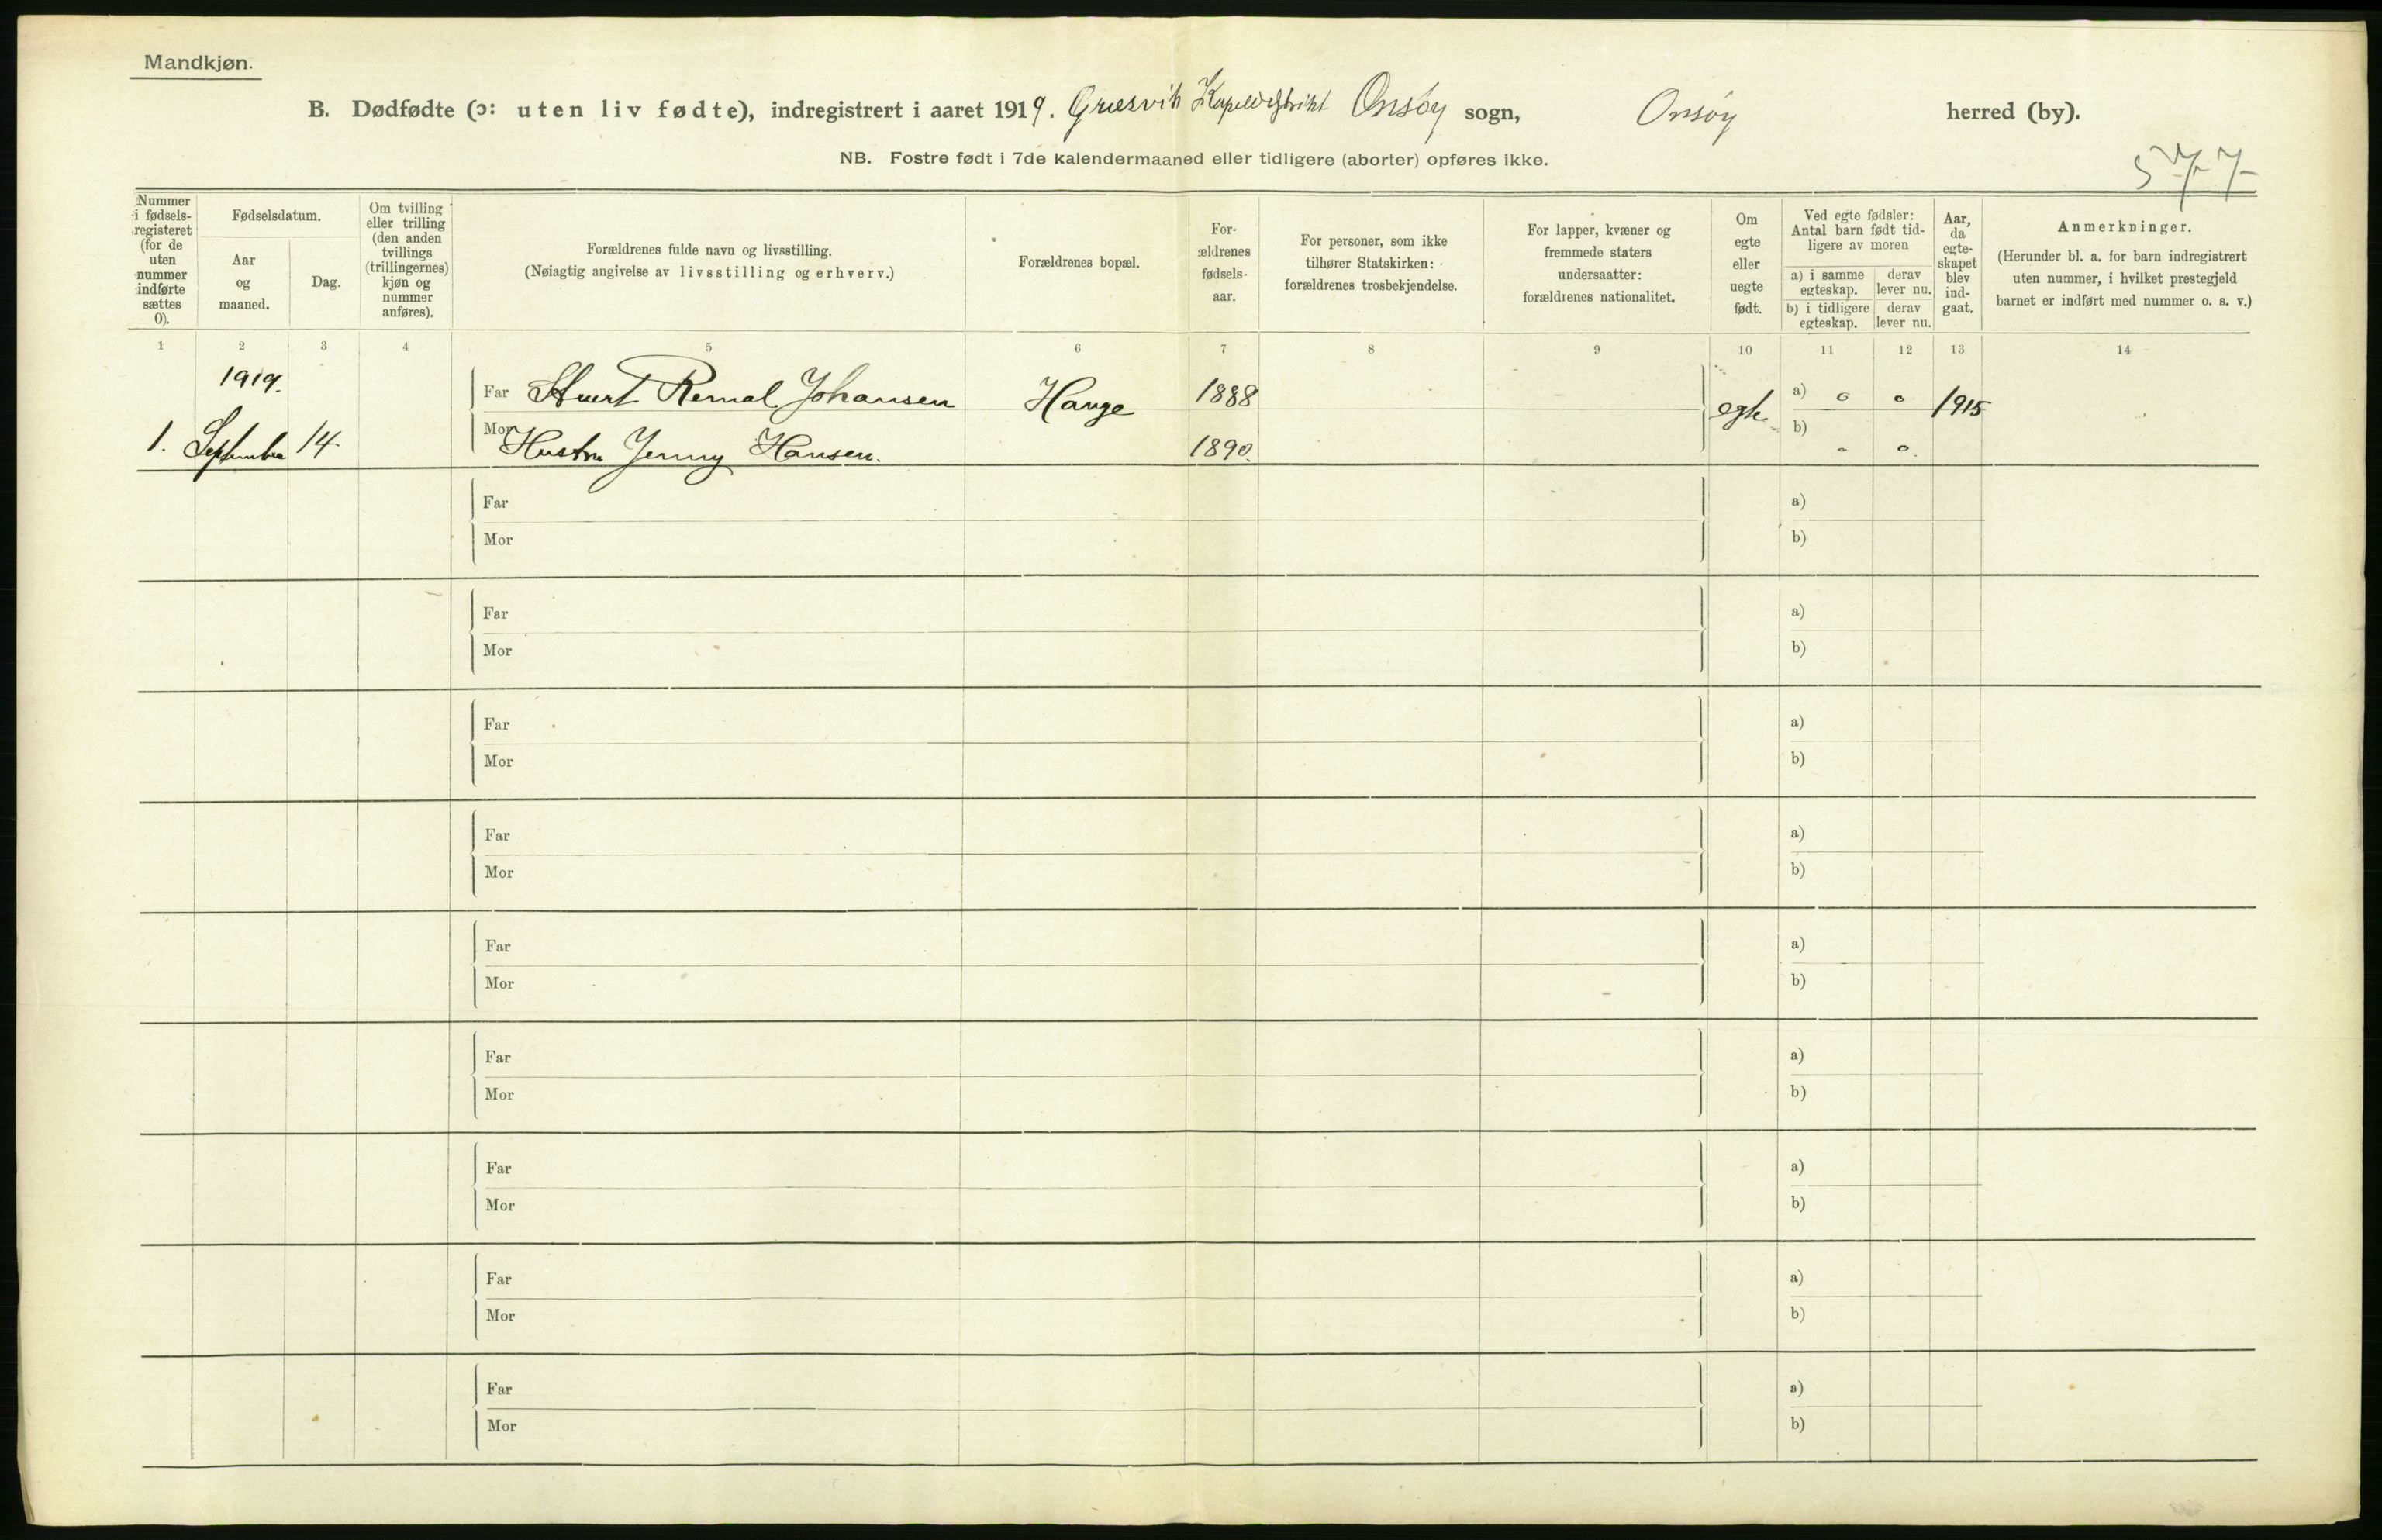 Mandkjøn.
B. Dødfødte (ɔ: uten liv fødte), indregistrert i aaret 1919. Gresvik Kapeldistrikt Onsøy sogn, Onsøy herred (by).
NB. Fostre født i 7de kalendermaaned eller tidligere (aborter) opføres ikke.
577
Nummer
i fødsels-
registeret
(for de
uten
nummer
indførte
sættes
0).
Fødselsdatum.
Aar
og
maaned.
Dag.
Om tvilling
eller trilling
(den anden
tvillings
(trillingernes)
kjøn og
nummer
anføres).
Forældrenes fulde navn og livsstilling.
(Nøiagtig angivelse av livsstilling og erhverv.)
Forældrenes bopæl.
For-
ældrenes
fødsels-
aar.
For personer, som ikke
tilhører Statskirken:
forældrenes trosbekjendelse.
For lapper, kvæner og
fremmede staters
undersaatter:
forældrenes nationalitet.
Om
egte
eller
uegte
født.
Ved egte fødsler:
Antal barn født tid-
ligere av moren
a) i samme
egteskap.
derav
lever nu.
b) i tidligere
egteskap.
derav
lever nu.
Aar,
da
egte-
skapet
blev
ind-
gaat.
Anmerkninger.
(Herunder bl. a. for barn indregistrert
uten nummer, i hvilket prestegjeld
barnet er indført med nummer o. s. v.)
1 2 3 4 5 6 7 8 9 10 11 12 13 14
1919.
Far Johansen Hauge 1888 egte a) 0 0 1915
1. September 14 Mor Hustru Jenny Hansen. 1890. b) 0 0.
Far a)
Mor b)
Far a)
Mor b)
Far a)
Mor b)
Far a)
Mor b)
Far a)
Mor b)
Far a)
Mor b)
Far a)
Mor b)
Far a)
Mor b)
Far a)
Mor b)